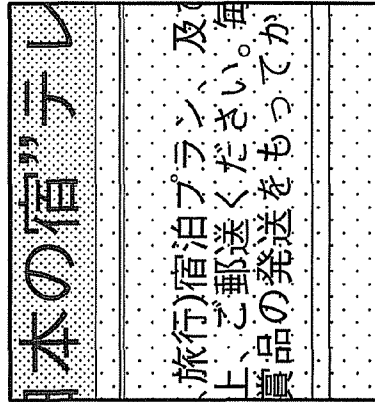 本の宿”テレ
、旅行)宿泊プラン、及び
上、ご郵送ください。毎
賞品の発送をもってか